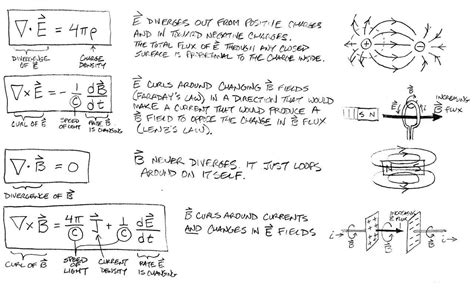 ∇·E⃗ = 4πρ
DIVERGENCE OF E⃗
CHARGE DENSITY
E⃗ DIVERGES OUT FROM POSITIVE CHARGES
AND IN TOWARD NEGATIVE CHARGES.
THE TOTAL FLUX OF E⃗ THROUGH ANY CLOSED
SURFACE IS PROPORTIONAL TO THE CHARGE INSIDE.
+ −
∇×E⃗ = −1/C dB⃗/dt
CURL OF E⃗
SPEED OF LIGHT
RATE B⃗ IS CHANGING
E⃗ CURLS AROUND CHANGING B⃗ FIELDS
(FARADAY'S LAW) IN A DIRECTION THAT WOULD
MAKE A CURRENT THAT WOULD PRODUCE A
B⃗ FIELD TO OPPOSE THE CHANGE IN B⃗ FLUX
(LENZ'S LAW).
S N
E⃗
i
INCREASING
B⃗ FLUX
∇·B⃗ = 0
DIVERGENCE OF B⃗
B⃗ NEVER DIVERGES. IT JUST LOOPS
AROUND ON ITSELF.
S N
∇×B⃗ = 4π/C J⃗ + 1/C dE⃗/dt
CURL OF B⃗
SPEED OF LIGHT
CURRENT DENSITY
RATE E⃗ IS CHANGING
B⃗ CURLS AROUND CURRENTS
AND CHANGES IN E⃗ FIELDS
INCREASING
E⃗ FLUX
i
B⃗
B⃗
B⃗
i